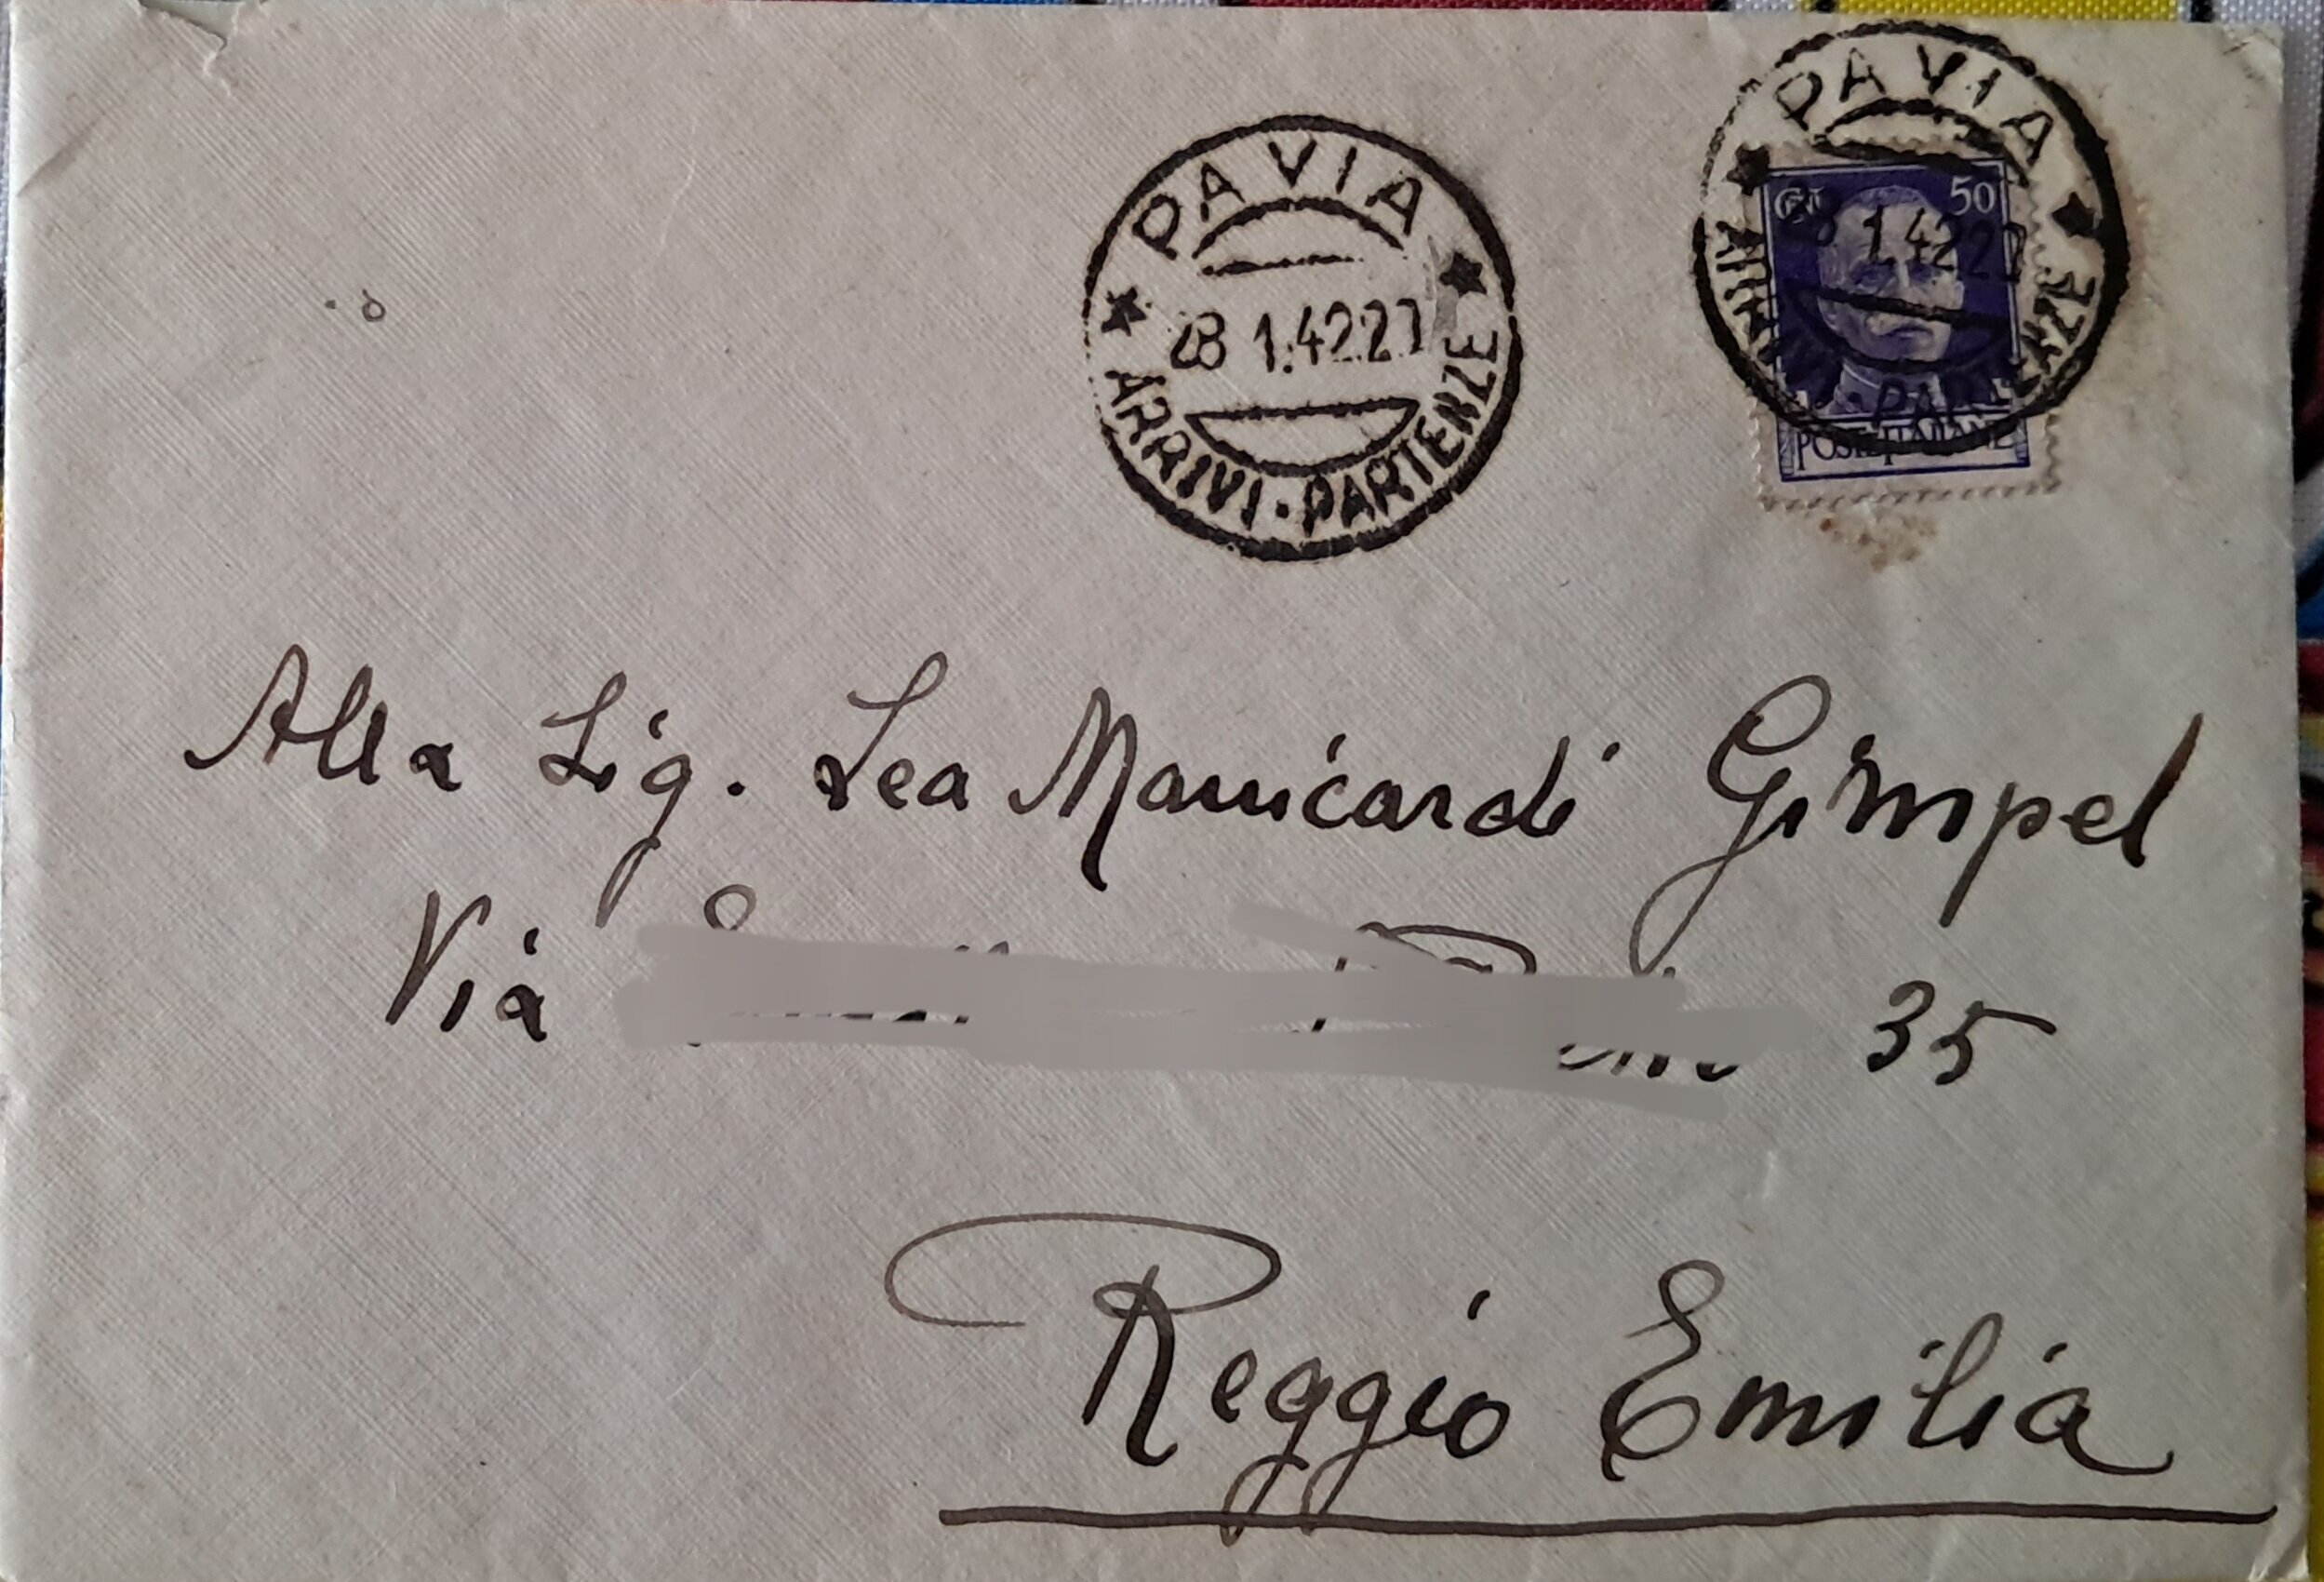 PAVIA
28 1.42 22
ARRIVI · PARTENZE
PAVIA
Ct 50
8 1.42 22
PARTENZE
POSTE ITALIANE
Alla Sig. Lea Manicardi Gimpel
Via 35
Reggio Emilia